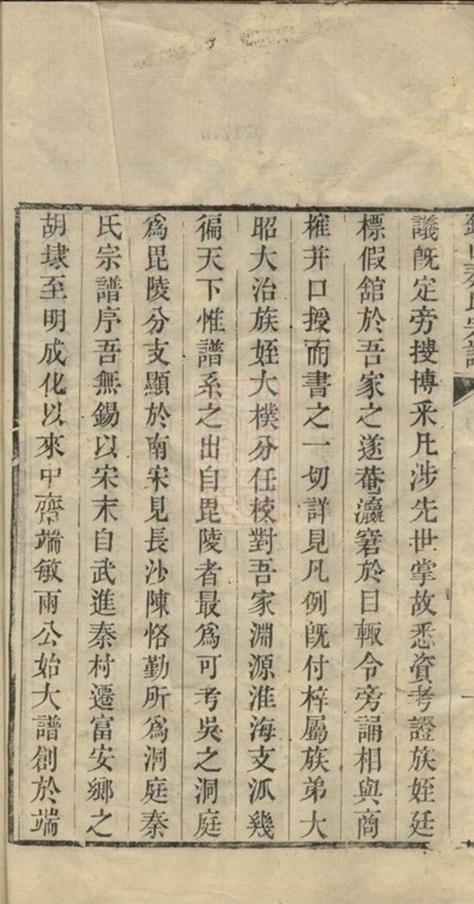 議既定旁搜博采凡涉先世掌故悉資考證族姪廷
標假舘於吾家之遂菴瀛窘於目輙令旁誦相與商
搉并口授而書之一切詳見凡例既付梓屬族弟大
昭大治族姪大樸分任校對吾家淵源淮海支派幾
徧天下惟譜系之出自毘陵者最爲可考吳之洞庭
爲毘陵分支顯於南宋見長沙陳恪勤所爲洞庭秦
氏宗譜序吾無錫以宋末自武進秦村遷富安鄉之
胡埭至明成化以來中齋端敏兩公始大譜創於端